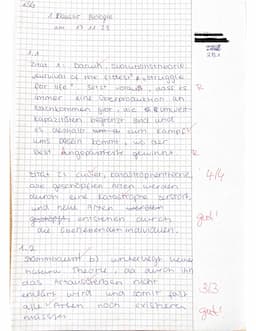 1. Klausur Biologie
am 17.11.23
1.1
Zitat 1: Darwin, Evolutionstheorie
"survival of the fittest" & "struggle
for life". Setzt voraus, dass es
immer eine Überproduktion an
Nachkommen gibt, die Umwelt-
kapazitäten begrenzt sind und
es deshalb zum Kampf
ums Dasein kommt, wo der
best Angepassteste gewinnt.
R
R
Zitat 2: Cuvier, Katastrophentheorie,
alle geschöpften Arten werden
durch eine Katastrophe zerstört,
und neue Arten werden
geschöpft entstehen durch
die überlebenden Individuen.
4/4
gut!
1.2
Stammbaum b) unterliegt keiner
Theorie, da durch ihn
das Aussterben nicht
erklärt wird und somit fast
alle Arten noch existieren
müssten
3/3
gut!